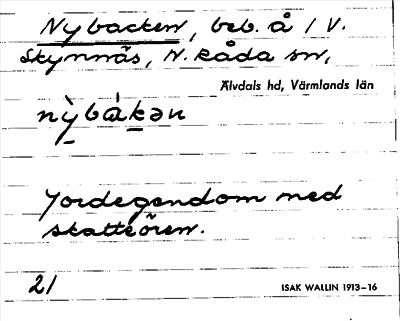 Nybacken, beb. å 1 V.
Skynnäs, N. Råda sn,
Älvdals hd, Värmlands län
nỳbákən
Jordegendom med
skatteören.
21
ISAK WALLIN 1913–16